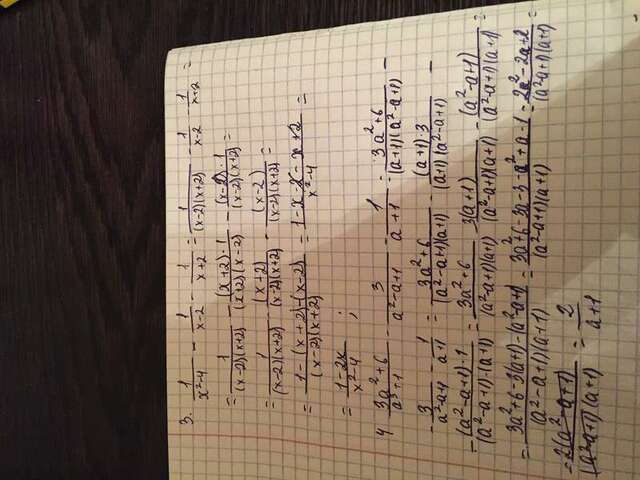 3. 1/(x²-4) - 1/(x-2) - 1/(x+2) = 1/((x-2)(x+2)) - 1/(x-2) - 1/(x+2) =
= 1/((x-2)(x+2)) - ((x+2)·1)/((x+2)(x-2)) - ((x-2)·1)/((x-2)(x+2)) =
= 1/((x-2)(x+2)) - (x+2)/((x-2)(x+2)) - (x-2)/((x-2)(x+2)) =
= (1-(x+2)-(x-2))/((x-2)(x+2)) = (1-x-2-x+2)/(x²-4) =
= (1-2x)/(x²-4) ;
4 (3a²+6)/(a³+1) - 3/(a²-a+1) - 1/(a+1) = (3a²+6)/((a+1)(a²-a+1)) -
- 3/(a²-a+1) - 1/(a+1) = (3a²+6)/((a²-a+1)(a+1)) - ((a+1)·3)/((a+1)(a²-a+1)) -
- ((a²-a+1)·1)/((a²-a+1)·(a+1)) = (3a²+6)/((a²-a+1)(a+1)) - (3(a+1))/((a²-a+1)(a+1)) - (a²-a+1)/((a²-a+1)(a+1)) =
= (3a²+6-3(a+1)-(a²-a+1))/((a²-a+1)(a+1)) = (3a²+6-3a-3-a²+a-1)/((a²-a+1)(a+1)) = (2a²-2a+2)/((a²-a+1)(a+1)) =
= (2(a²-a+1))/((a²-a+1)(a+1)) = 2/(a+1)